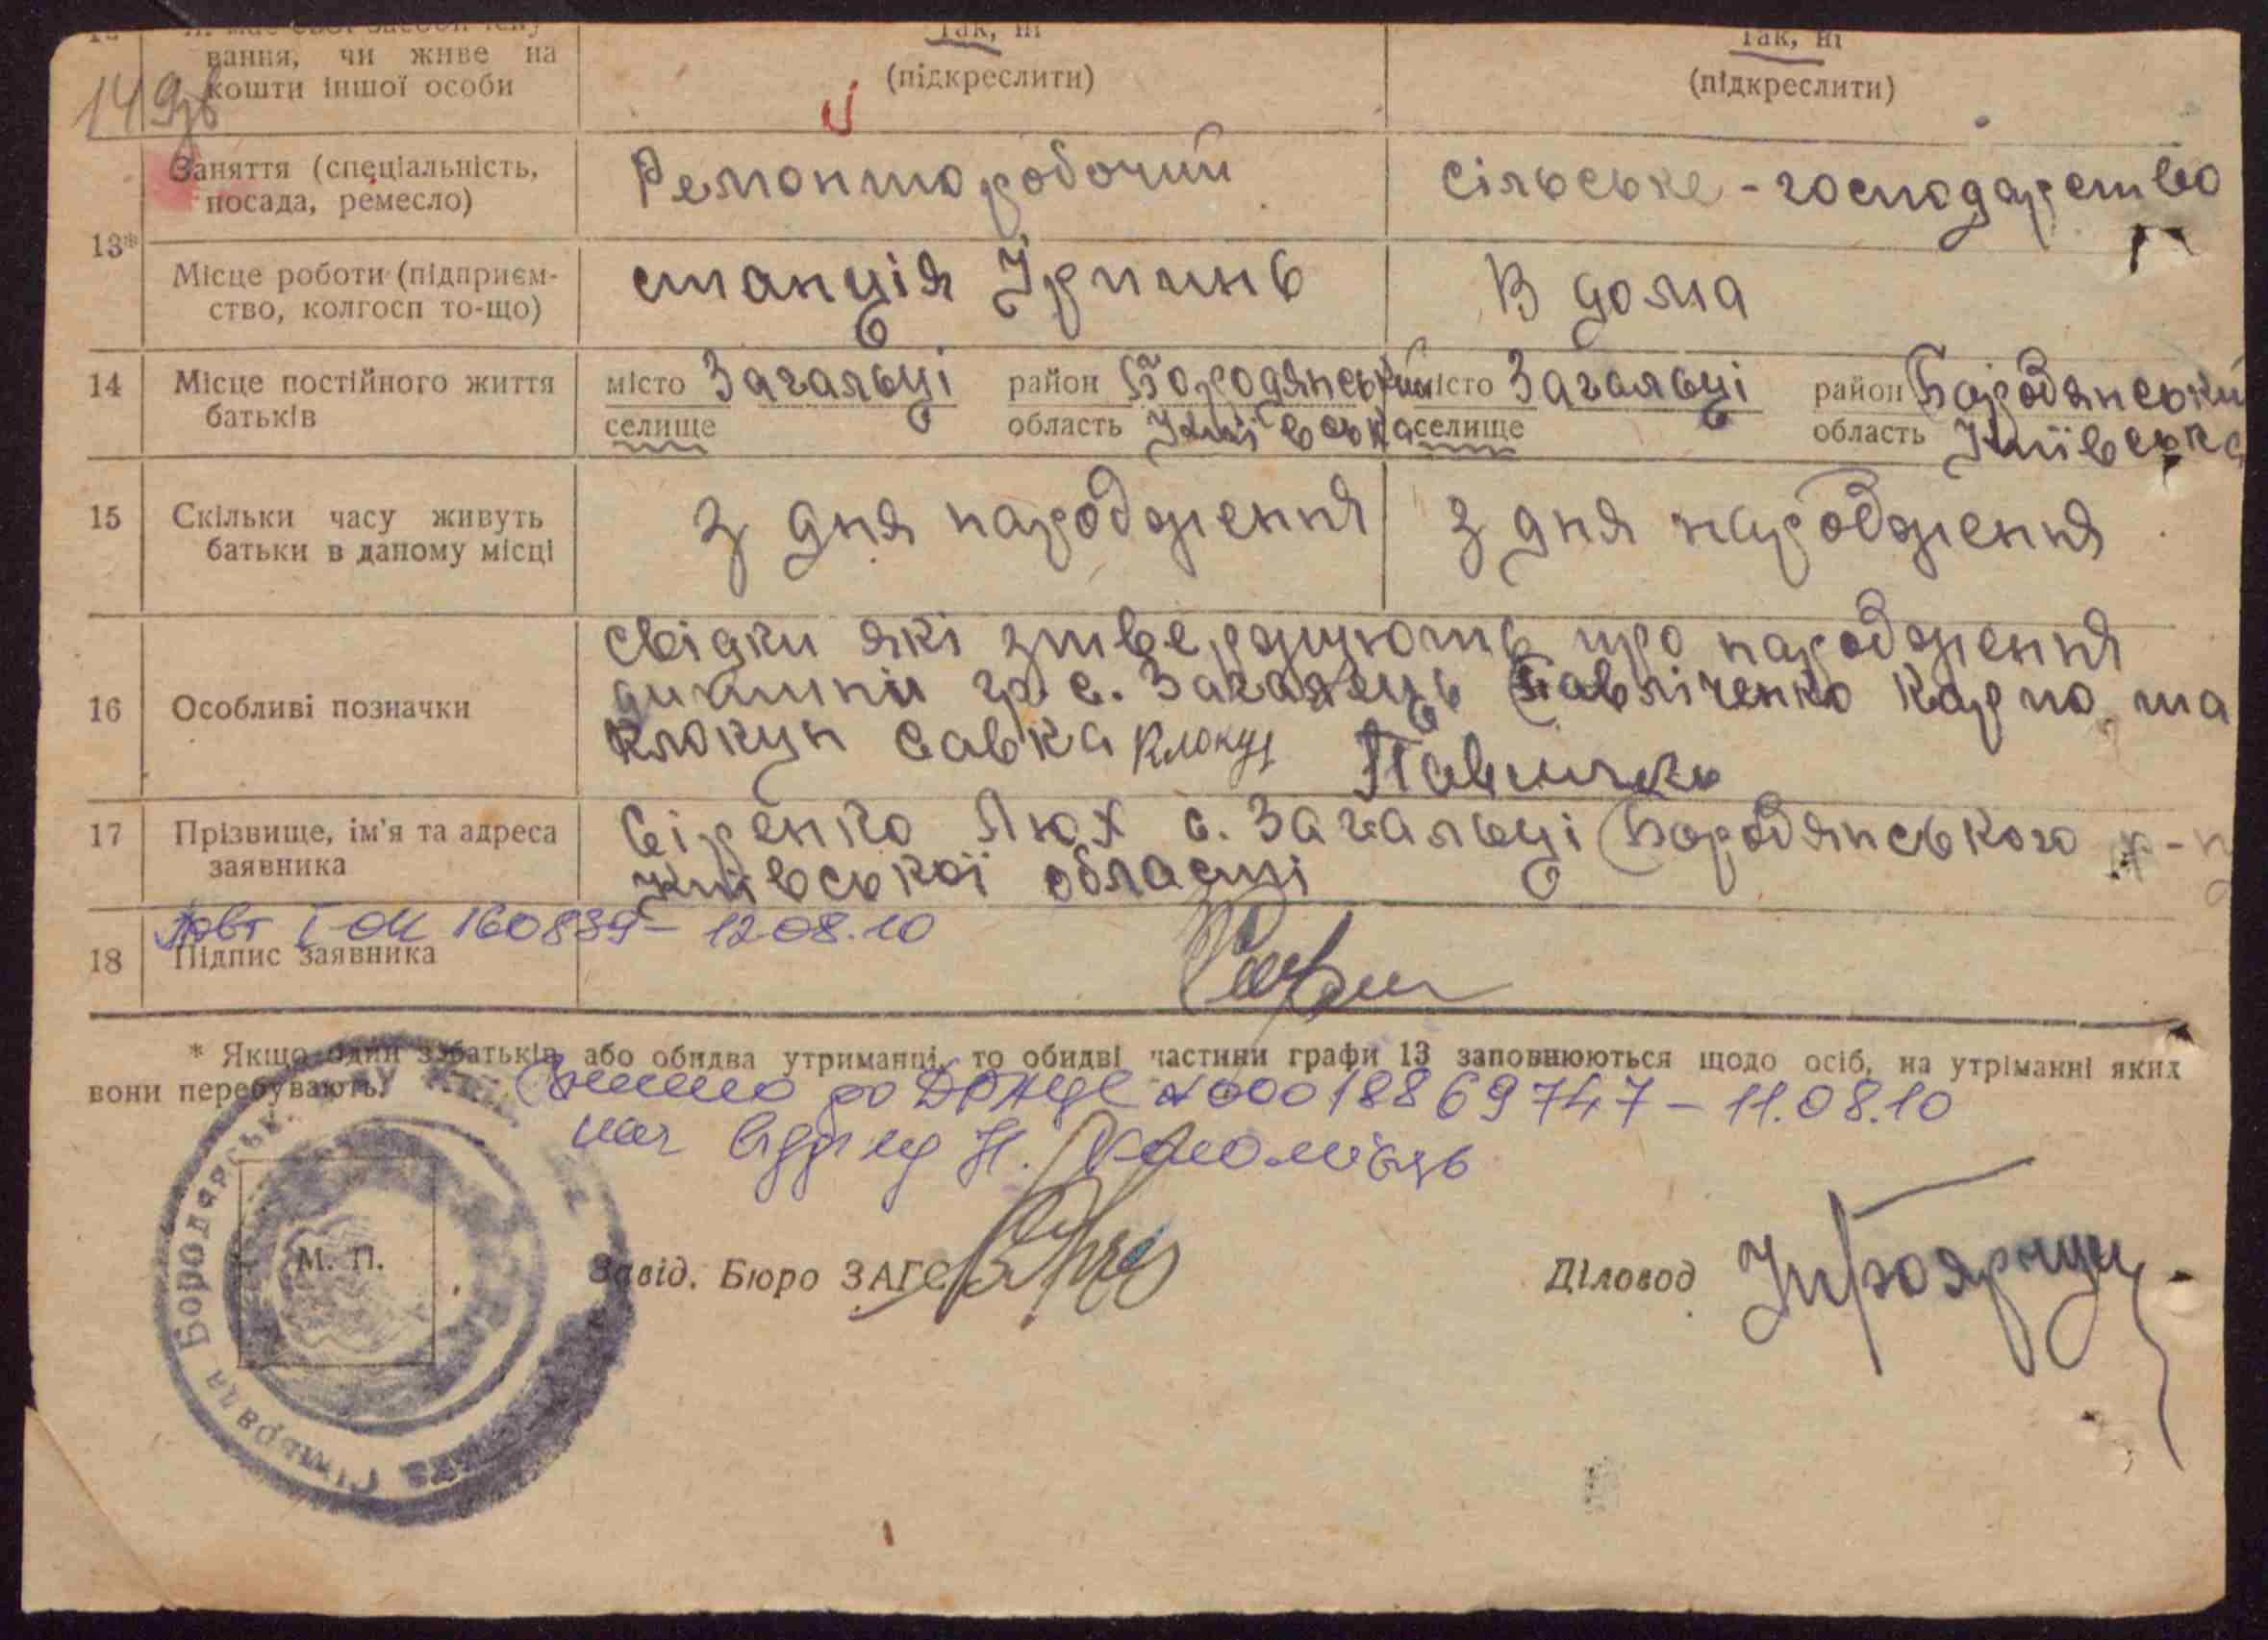 вання, чи живе на
кошти іншої особи
Так, ні
(підкреслити)
Так, ні
(підкреслити)
149
13*
Заняття (спеціальність,
посада, ремесло)
Ремонтюробочий
сільське-господарство
Місце роботи (підприєм-
ство, колгосп то-що)
станція Ірпинь
В дома
14
Місце постійного життя
батьків
місто Загальці район Бородянський
селище область Київська
місто Загальці район Бородянський
селище область Київська
15
Скільки часу живуть
батьки в даному місці
з дня народження
з дня народження
16
Особливі позначки
свідки які зтверджують про народження
дитини гр. с. Загалець Павліченко Карпо та
Клокун Савка Клокун
17
Прізвище, ім'я та адреса
заявника
Сіренко с. Загальці Бородянського р-н
Київської області
Повт І-ОК 160839 - 12.08.10
18
Підпис заявника
* Якщо один з батьків або обидва утриманці, то обидві частини графи 13 заповнюються щодо осіб, на утріманні яких
вони перебувають.
до ДРАЦС 00018869747 - 11.08.10
нач відділу
Сільрада Бородянськ.
М. П.
Завід. Бюро ЗАГС
Діловод